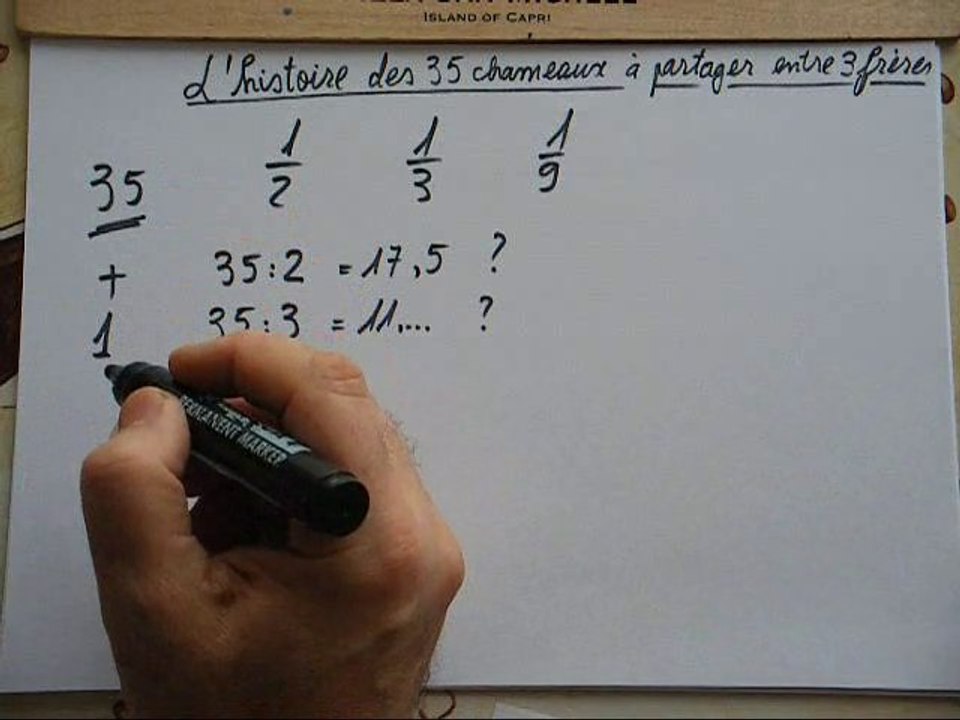 ISLAND OF CAPRI
L'histoire des 35 chameaux à partager entre 3 frères
1/2 1/3 1/9
35
+ 35:2 = 17,5 ?
1 35:3 = 11,... ?
PERMANENT MARKER